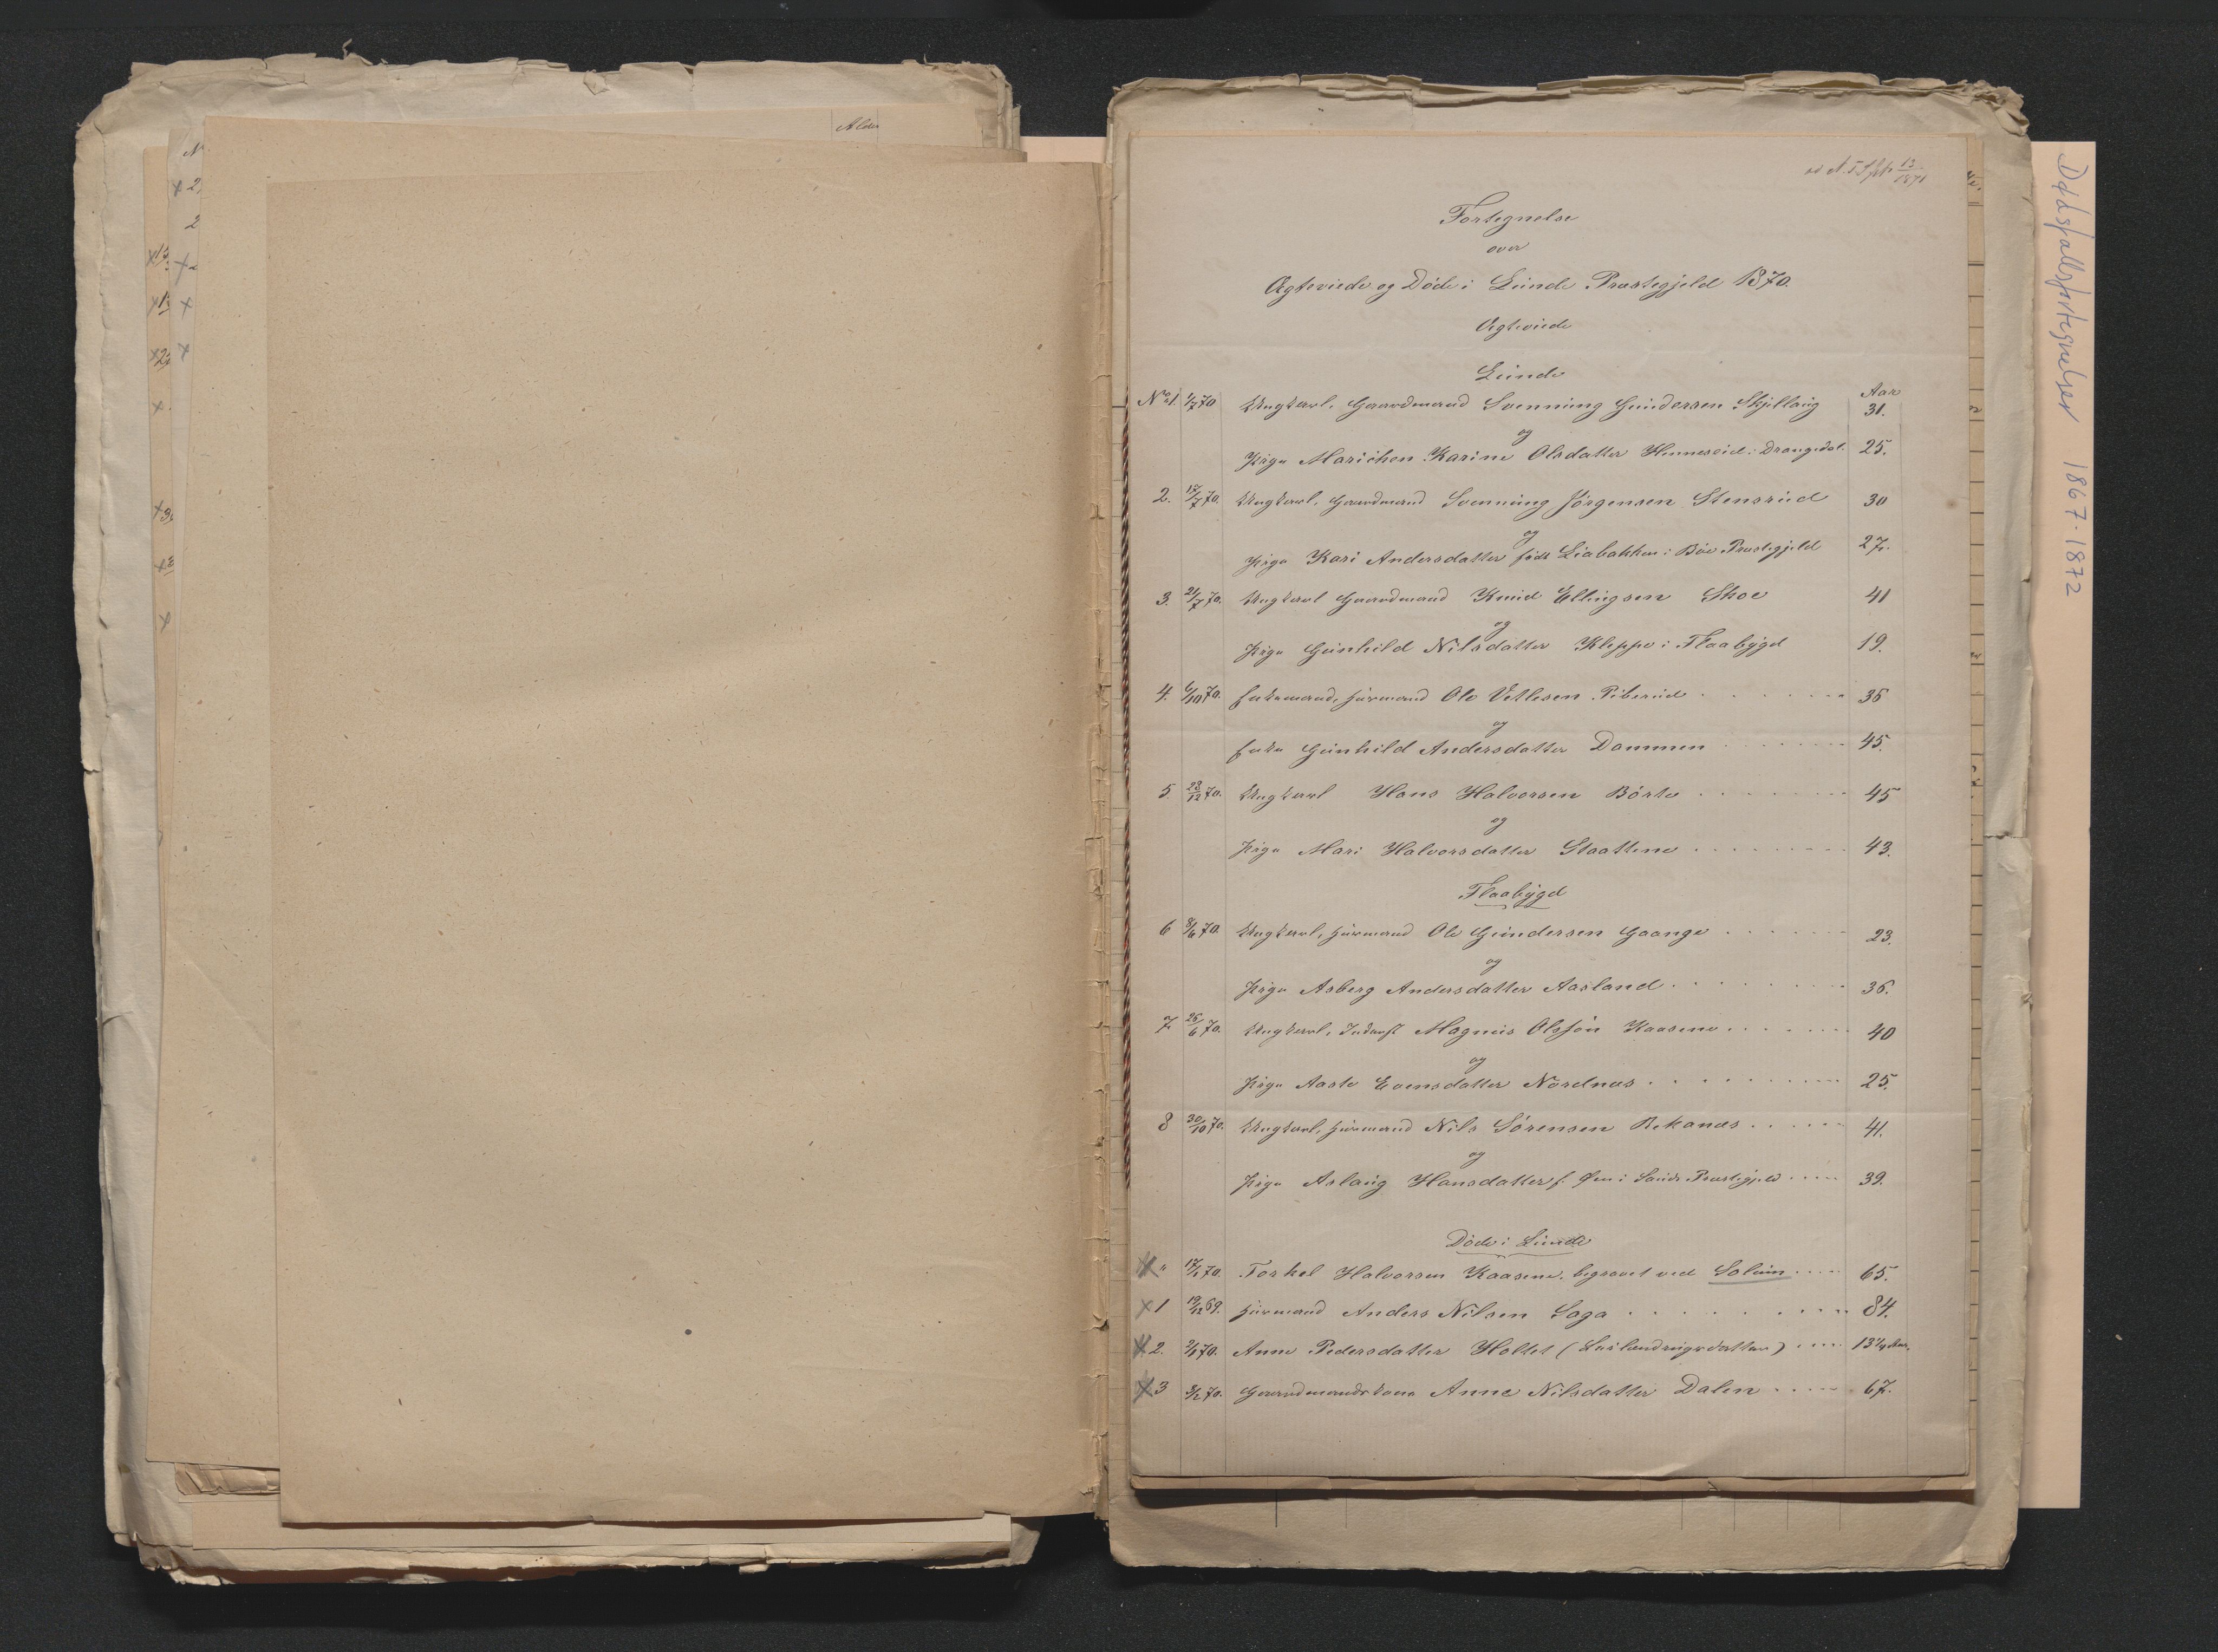 Alder
13/1871
Fortegnelse
over
Ægteviede og Døde i Lunde Præstegjeld 1870.
Ægteviede
Lunde
Aar
No 1. 1/7 70 Ungkarl, Gaardmand Svenning Gundersen Skjellaug 31.
og
Pige Marichen Karine Olsdatter Henneseid i Drangedal 25.
2. 17/7 70. Ungkarl, Gaardmand Svenning Jörgensen Stensrud 30
og
Pige Kari Andersdatter født Liabakken i Böe Præstegjeld 27.
3. 21/7 70. Ungkarl Gaardmand Knud Ellingsen Skoe 41
og
Pige Gunhild Nilsdatter Kleppe i Flaabygd 19.
4. 6/10 70. Enkemand, Huusmand Ole Vetlesen Piberud 35
og
Enke Gunhild Andersdatter Dammen 45.
5. 28/12 70. Ungkarl Hans Halvorsen Börte 45
og
Pige Mari Halvorsdatter Staattene 43.
Flaabygd
6 8/6 70. Ungkarl, Huusmand Ole Gundersen Gaange 23.
og
Pige Asberg Andersdatter Aasland 36.
7. 26/6 70. Ungkarl, Inderst Magnus Olsøn Kaasene 40
og
Pige Aaste Evensdatter Nordnæs 25.
8 30/10 70. Ungkarl, Huusmand Nils Sörensen Bekanæs 41.
og
Pige Aslaug Hansdatter f. Øen i Saude Præstegjeld 39.
Døde i Lunde
" 17/1 70. Torkel Halvorsen Kaasene, begravet ved Solum 65.
x 1 19/12 69. Huusmand Anders Nilsen Saga 84.
x 2. 2/1 70. Anne Pedersdatter Holtet 13 1/4 Aar.
x 3 3/2 70. Gaardmandskone Anne Nilsdatter Dalen 67.
Dødsfallsfortegnelser 1867-1872